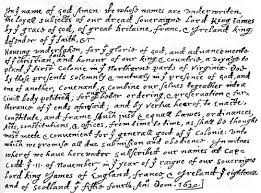 In ye name of god Amen. We whose names are underwriten,
the loyall subjects of our dread soveraigne Lord King James
by ye grace of god, of great Britaine, franc, & Ireland king,
defender of ye faith, &c
Haveing undertaken, for ye glorie of god, and advancemente
of ye christian and honour of our king & countrie, a voyage to
plant ye first colonie in ye Northerne parts of Virginia. Doe
by these presents solemnly & mutualy in ye presence of god, and
one of another, Covenant, & combine our selves togeather into a
Civill body politick; for our better ordering, & preservation & fur=
therance of ye ends aforesaid; and by vertue hearof to Enacte,
constitute, and frame shuch just & equall Lawes, ordinances,
Acts, constitutions, & offices, from time to time, as shall be thought
most meete & convenient for ye generall good of ye Colonie: unto
which we promise all due submission and obedience. In witnes
wherof we have hereunder subscribed our names at Cap=
Codd ye .11. of November, in ye year of ye raigne of our soveraigne
Lord king James of England, france, & Ireland ye eighteenth
and of Scotland ye fiftie fourth. Ano: Dom. 1620.